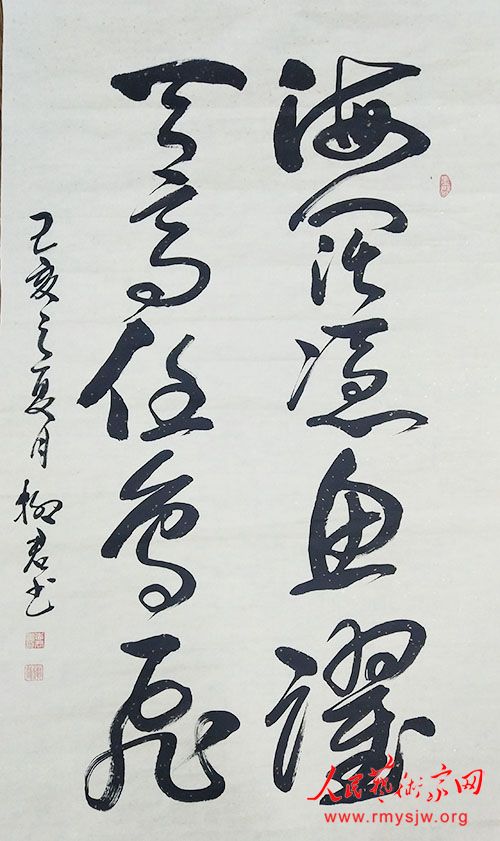 海阔凭鱼躍
天高任鸟飛
己亥之夏月柳君书
人民藝術家网
www.rmysjw.org